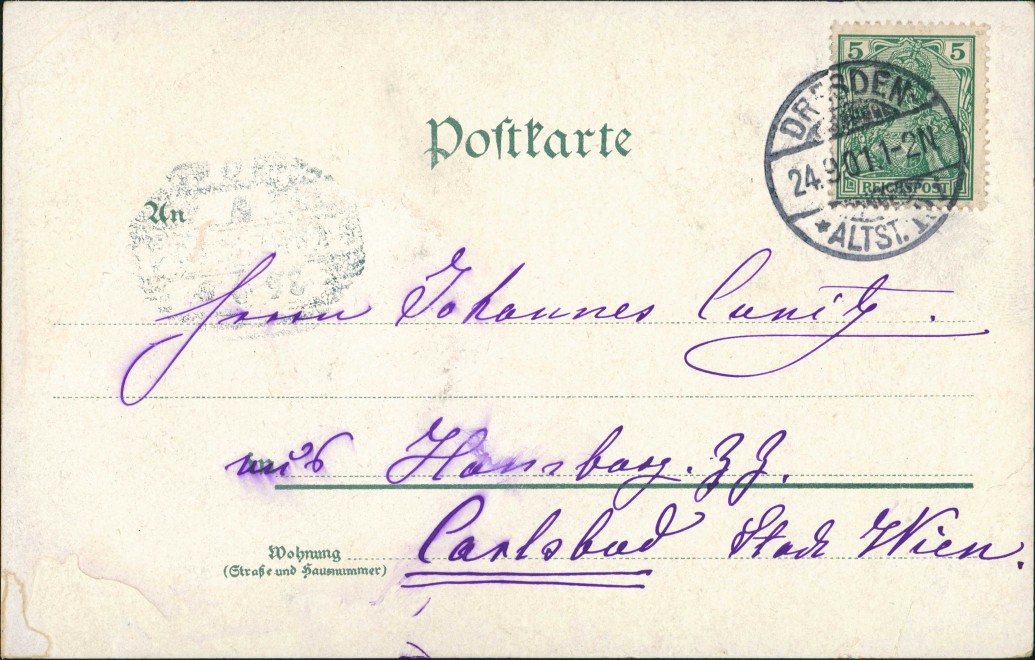 5 5
REICHSPOST
DRESDEN-
24.9.01.1-2N
*ALTST.
Poſtkarte
An
Herrn Johannes Canitz.
aus Hamburg. z. Z.
Carlsbad Stadt Wien.
Wohnung
(Straße und Hausnummer)